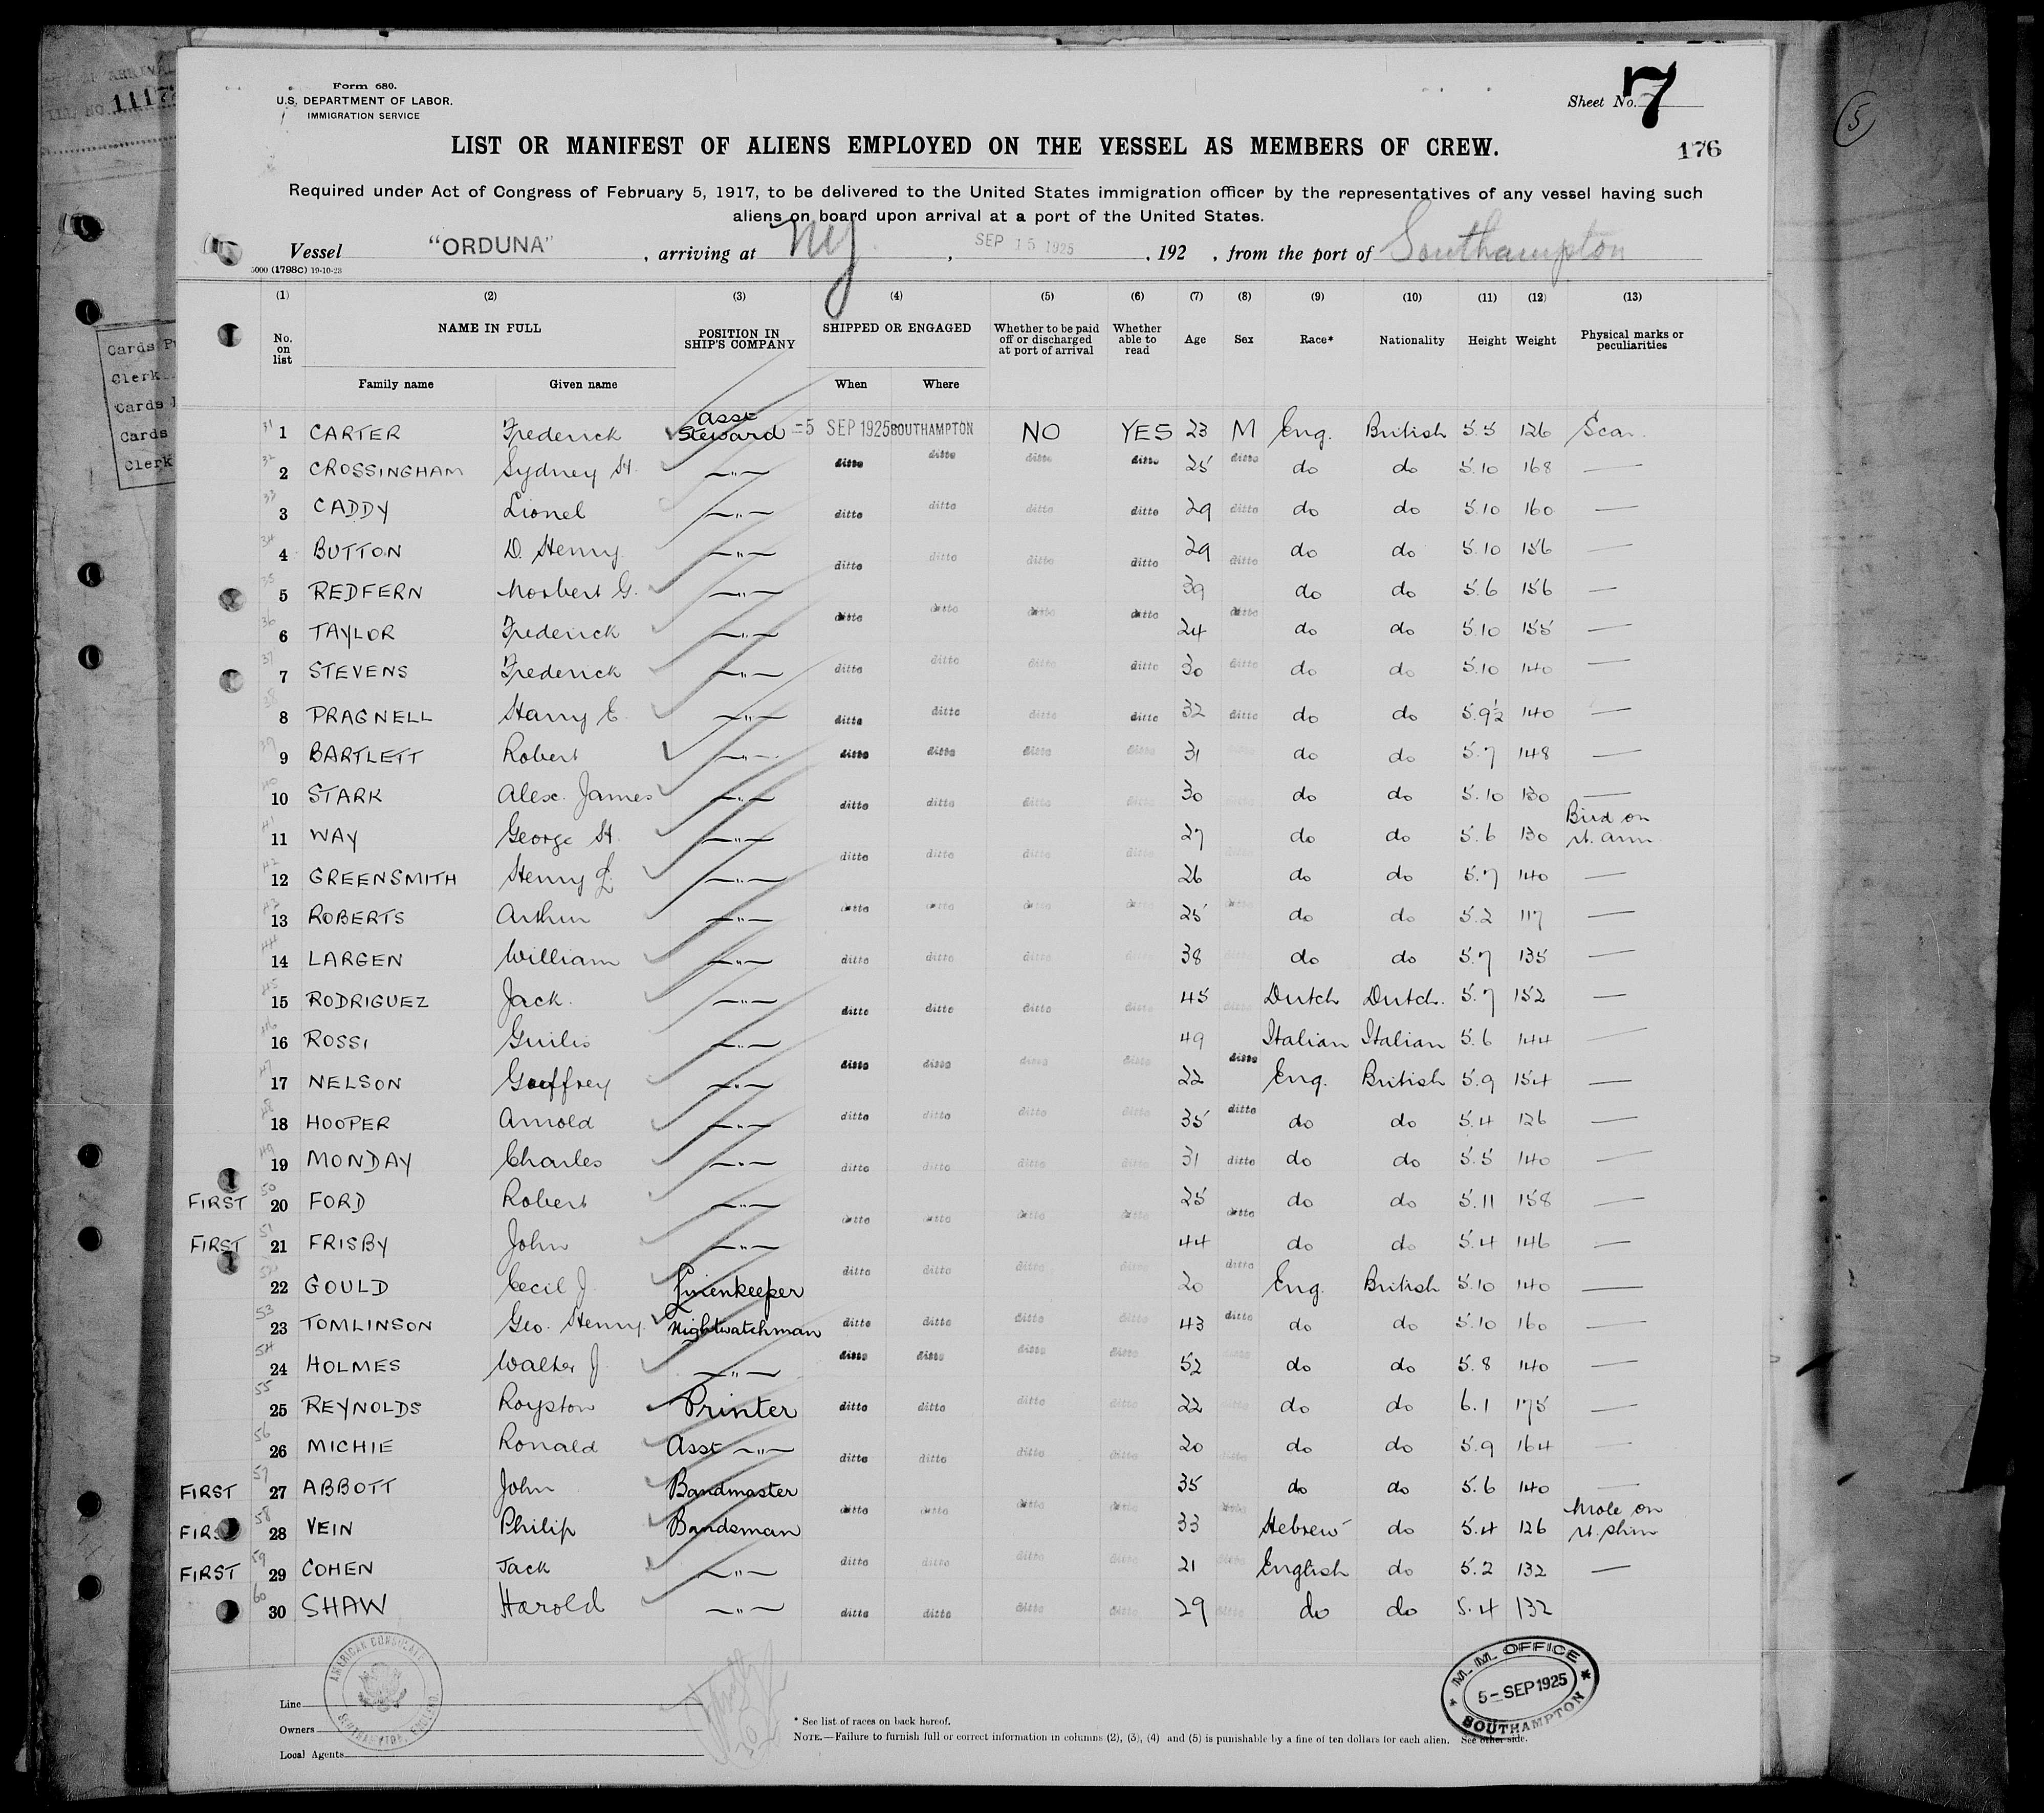 Form 680.
U.S. DEPARTMENT OF LABOR.
IMMIGRATION SERVICE
Sheet No. 7
176
5
1117
LIST OR MANIFEST OF ALIENS EMPLOYED ON THE VESSEL AS MEMBERS OF CREW.
Required under Act of Congress of February 5, 1917, to be delivered to the United States immigration officer by the representatives of any vessel having such
aliens on board upon arrival at a port of the United States.
Vessel "ORDUNA", arriving at NY, SEP 15 1925, 192 , from the port of Southampton
5000 (1798C) 19-10-23
(1) (2) (3) (4) (5) (6) (7) (8) (9) (10) (11) (12) (13)
No. on list NAME IN FULL POSITION IN SHIP'S COMPANY SHIPPED OR ENGAGED Whether to be paid off or discharged at port of arrival Whether able to read Age Sex Race* Nationality Height Weight Physical marks or peculiarities
Family name Given name When Where
31 1 CARTER Frederick Asst Steward =5 SEP 1925 SOUTHAMPTON NO YES 23 M Eng. British 5.5 126 Scar.
32 2 CROSSINGHAM Sydney H. —"— ditto ditto ditto ditto 25 ditto do do 5.10 168 —
33 3 CADDY Lionel —"— ditto ditto ditto ditto 29 ditto do do 5.10 160 —
34 4 BUTTON D. Henry —"— ditto ditto ditto ditto 29 ditto do do 5.10 156 —
35 5 REDFERN Norbert G. —"— 39 do do 5.6 156 —
36 6 TAYLOR Frederick —"— ditto ditto ditto ditto 24 ditto do do 5.10 155 —
37 7 STEVENS Frederick —"— ditto ditto ditto ditto 30 ditto do do 5.10 140 —
38 8 PRAGNELL Harry E. —"— ditto ditto ditto ditto 32 ditto do do 5.9½ 140 —
39 9 BARTLETT Robert —"— ditto ditto ditto ditto 31 do do 5.7 148 —
40 10 STARK Alex. James —"— ditto ditto ditto ditto 30 do do 5.10 130 —
41 11 WAY George H. —"— ditto ditto ditto ditto 27 do do 5.6 130 Bird on rt. arm
42 12 GREENSMITH Henry L. —"— 26 do do 5.7 140 —
43 13 ROBERTS Arthur —"— ditto ditto ditto ditto 25 ditto do do 5.2 117 —
44 14 LARGEN William —"— ditto ditto ditto ditto 38 ditto do do 5.7 135 —
45 15 RODRIGUEZ Jack. —"— ditto ditto ditto ditto 45 ditto Dutch Dutch. 5.7 152 —
46 16 ROSSI Guilio —"— 49 Italian Italian 5.6 144 —
47 17 NELSON Geoffrey —"— ditto ditto ditto ditto 22 ditto Eng. British 5.9 154 —
48 18 HOOPER Arnold —"— ditto ditto ditto ditto 35 ditto do do 5.4 126 —
49 19 MONDAY Charles —"— ditto ditto ditto ditto 31 ditto do do 5.5 140 —
FIRST 50 20 FORD Robert —"— 25 do do 5.11 158 —
FIRST 51 21 FRISBY John —"— ditto ditto ditto ditto 44 ditto do do 5.4 146 —
52 22 GOULD Cecil J. Linenkeeper ditto ditto ditto ditto 20 ditto Eng. British 5.10 140 —
53 23 TOMLINSON Geo. Henry Nightwatchman ditto ditto ditto ditto 43 ditto do do 5.10 160 —
54 24 HOLMES Walter J. —"— ditto ditto ditto ditto 52 ditto do do 5.8 140 —
55 25 REYNOLDS Royston Printer ditto ditto ditto ditto 22 ditto do do 6.1 175 —
56 26 MICHIE Ronald Asst —"— ditto ditto ditto ditto 20 ditto do do 5.9 164 —
FIRST 57 27 ABBOTT John Bandmaster 35 do do 5.6 140 —
FIRST 58 28 VEIN Philip Bandsman ditto ditto ditto ditto 33 ditto Hebrew do 5.4 126 Mole on rt. shin
FIRST 59 29 COHEN Jack —"— ditto ditto ditto ditto 21 ditto English do 5.2 132 —
60 30 SHAW Harold —"— ditto ditto ditto ditto 29 ditto do do 5.4 132
AMERICAN CONSULATE
SOUTHAMPTON, ENGLAND
Line
Owners
Local Agents
* See list of races on back hereof.
NOTE.—Failure to furnish full or correct information in columns (2), (3), (4) and (5) is punishable by a fine of ten dollars for each alien. See other side.
* M. M. OFFICE *
5- SEP 1925
SOUTHAMPTON
Cards
Clerk
Cards
Cards
Clerk